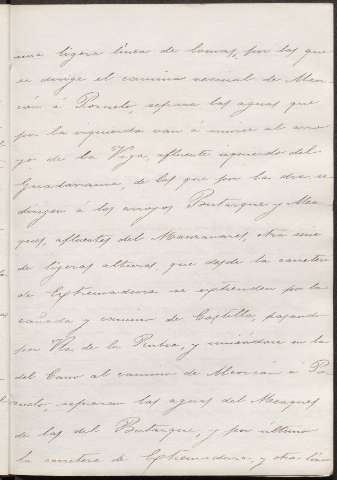 una ligera linea de lomas, por las que
se dirige el camino vecinal de Alcor-
cón á Pozuelo, separa las aguas que
por la izquierda van á unirse al arro-
yo de la Vega, afluente izquierdo del
Guadarrama, de las que por la dra. se
dirigen á los arroyos Butarque y Mea-
ques, afluentes del Manzanares, otra serie
de ligeras alturas, que desde la carretera
de Extremadura se estienden por la
cañada y camino de Castilla, pasando
por Vta. de la Rubia, y uniendose en la
del Cano al camino de Alcorcón á Po-
zuelo, separan las aguas del Meaques
de las del Butarque, y por último
la carretera de Extremadura y otra lin-